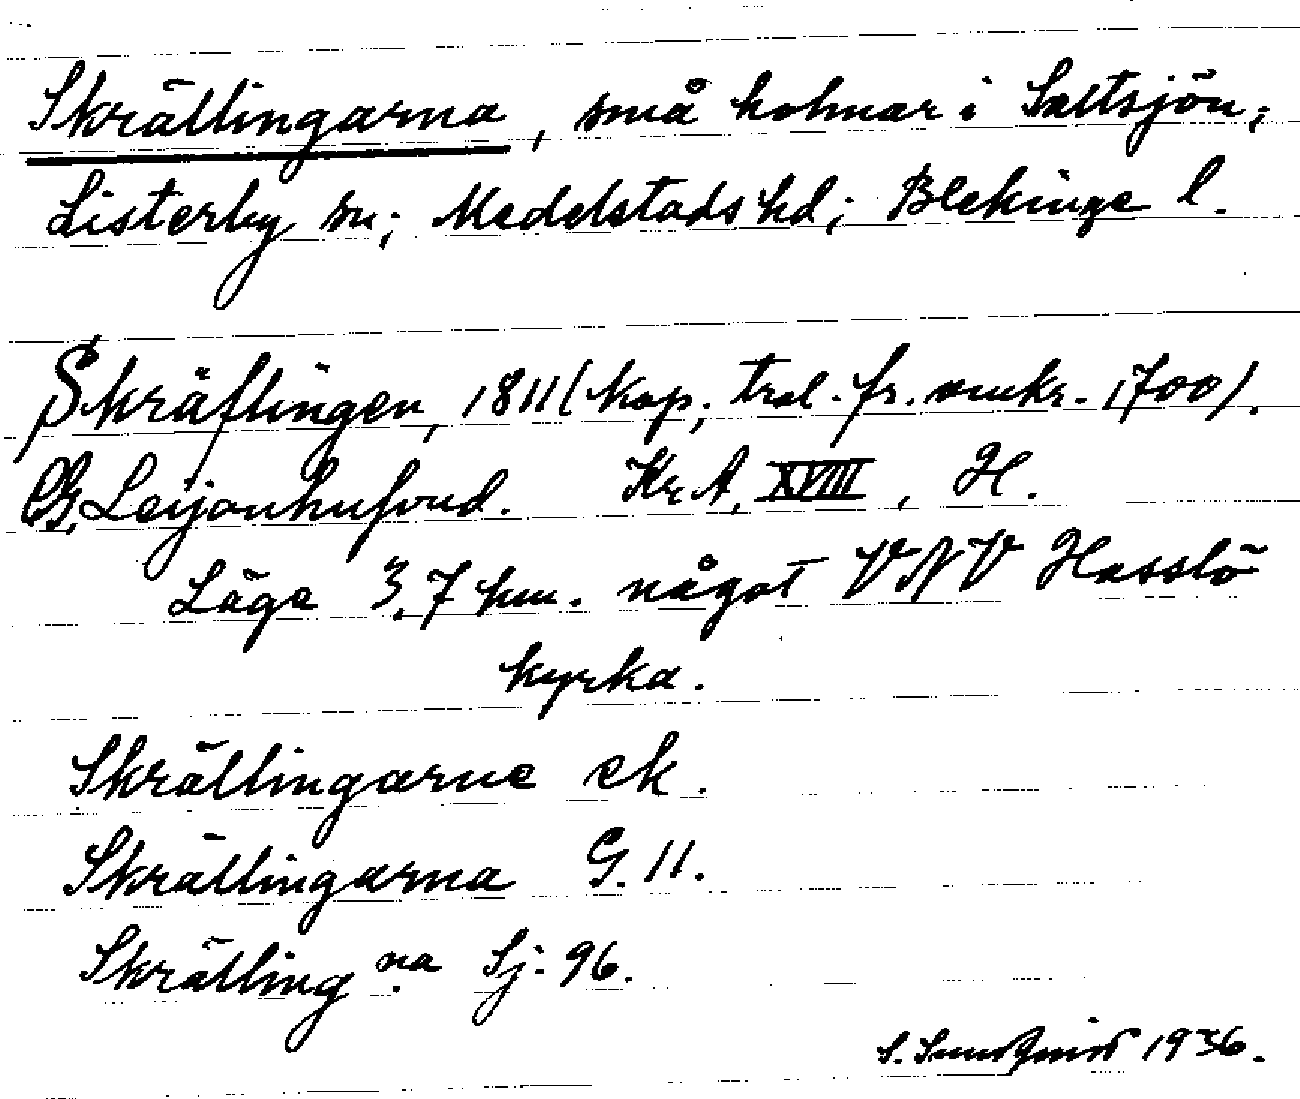 Skrällingarna, små holmar i Saltsjön;
Listerby sn; Medelstads hd; Blekinge l.
Skräflingen, 1811 (kop, trol. fr. omkr. 1700).
CG. Leijonhufvud. Kr A, XVIII, H.
Läge 3,7 km. något VNV Hasslö
kyrka.
Skrällingarne ek.
Skrällingarna G. 11.
Skrälling:na Sj. 96.
S. Sundquist 1936.